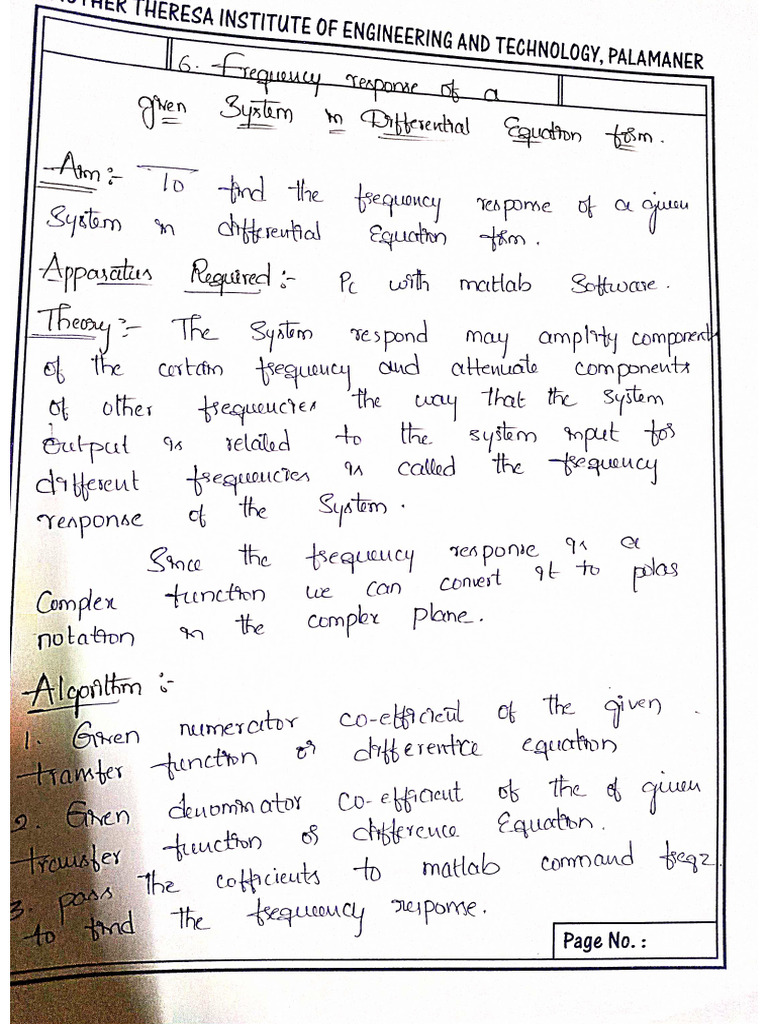 THER THERESA INSTITUTE OF ENGINEERING AND TECHNOLOGY, PALAMANER
6. Frequency response of a
given System in Differential Equation form.
Aim:- To find the frequency response of a given
System in differential Equation form.
Apparatus Required:- Pc with matlab Software.
Theory:- The System respond may amplify components
of the certain frequency and attenuate components
of other frequencies the way that the system
output is related to the system input for
different frequencies is called the frequency
response of the System.
Since the frequency response is a
Complex function we can convert it to polar
notation in the complex plane.
Algorithm:-
1. Given numerator co-efficient of the given
transfer function or difference equation
2. Given denominator co-efficient of the of given
transfer function or difference Equation.
3. pass the cofficients to matlab command freqz
to find the frequency response.
Page No. :